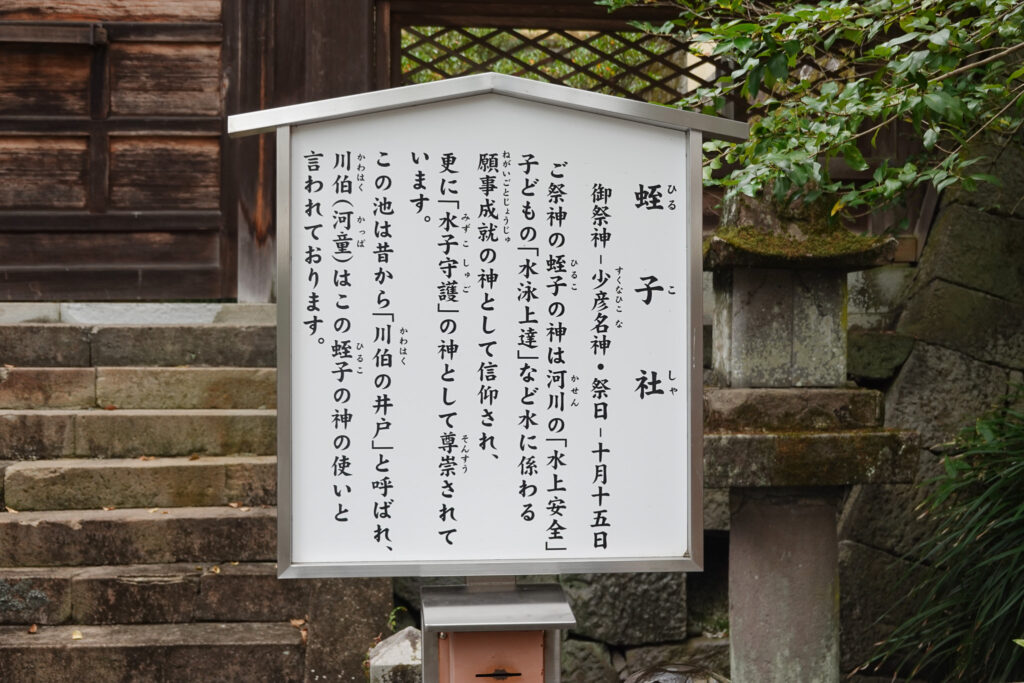 蛭子社
御祭神－少彦名神・祭日－十月十五日
ご祭神の蛭子の神は河川の「水上安全」
子どもの「水泳上達」など水に係わる
願事成就の神として信仰され、
更に「水子守護」の神として尊崇されて
います。
この池は昔から「川伯の井戸」と呼ばれ、
川伯(河童)はこの蛭子の神の使いと
言われております。